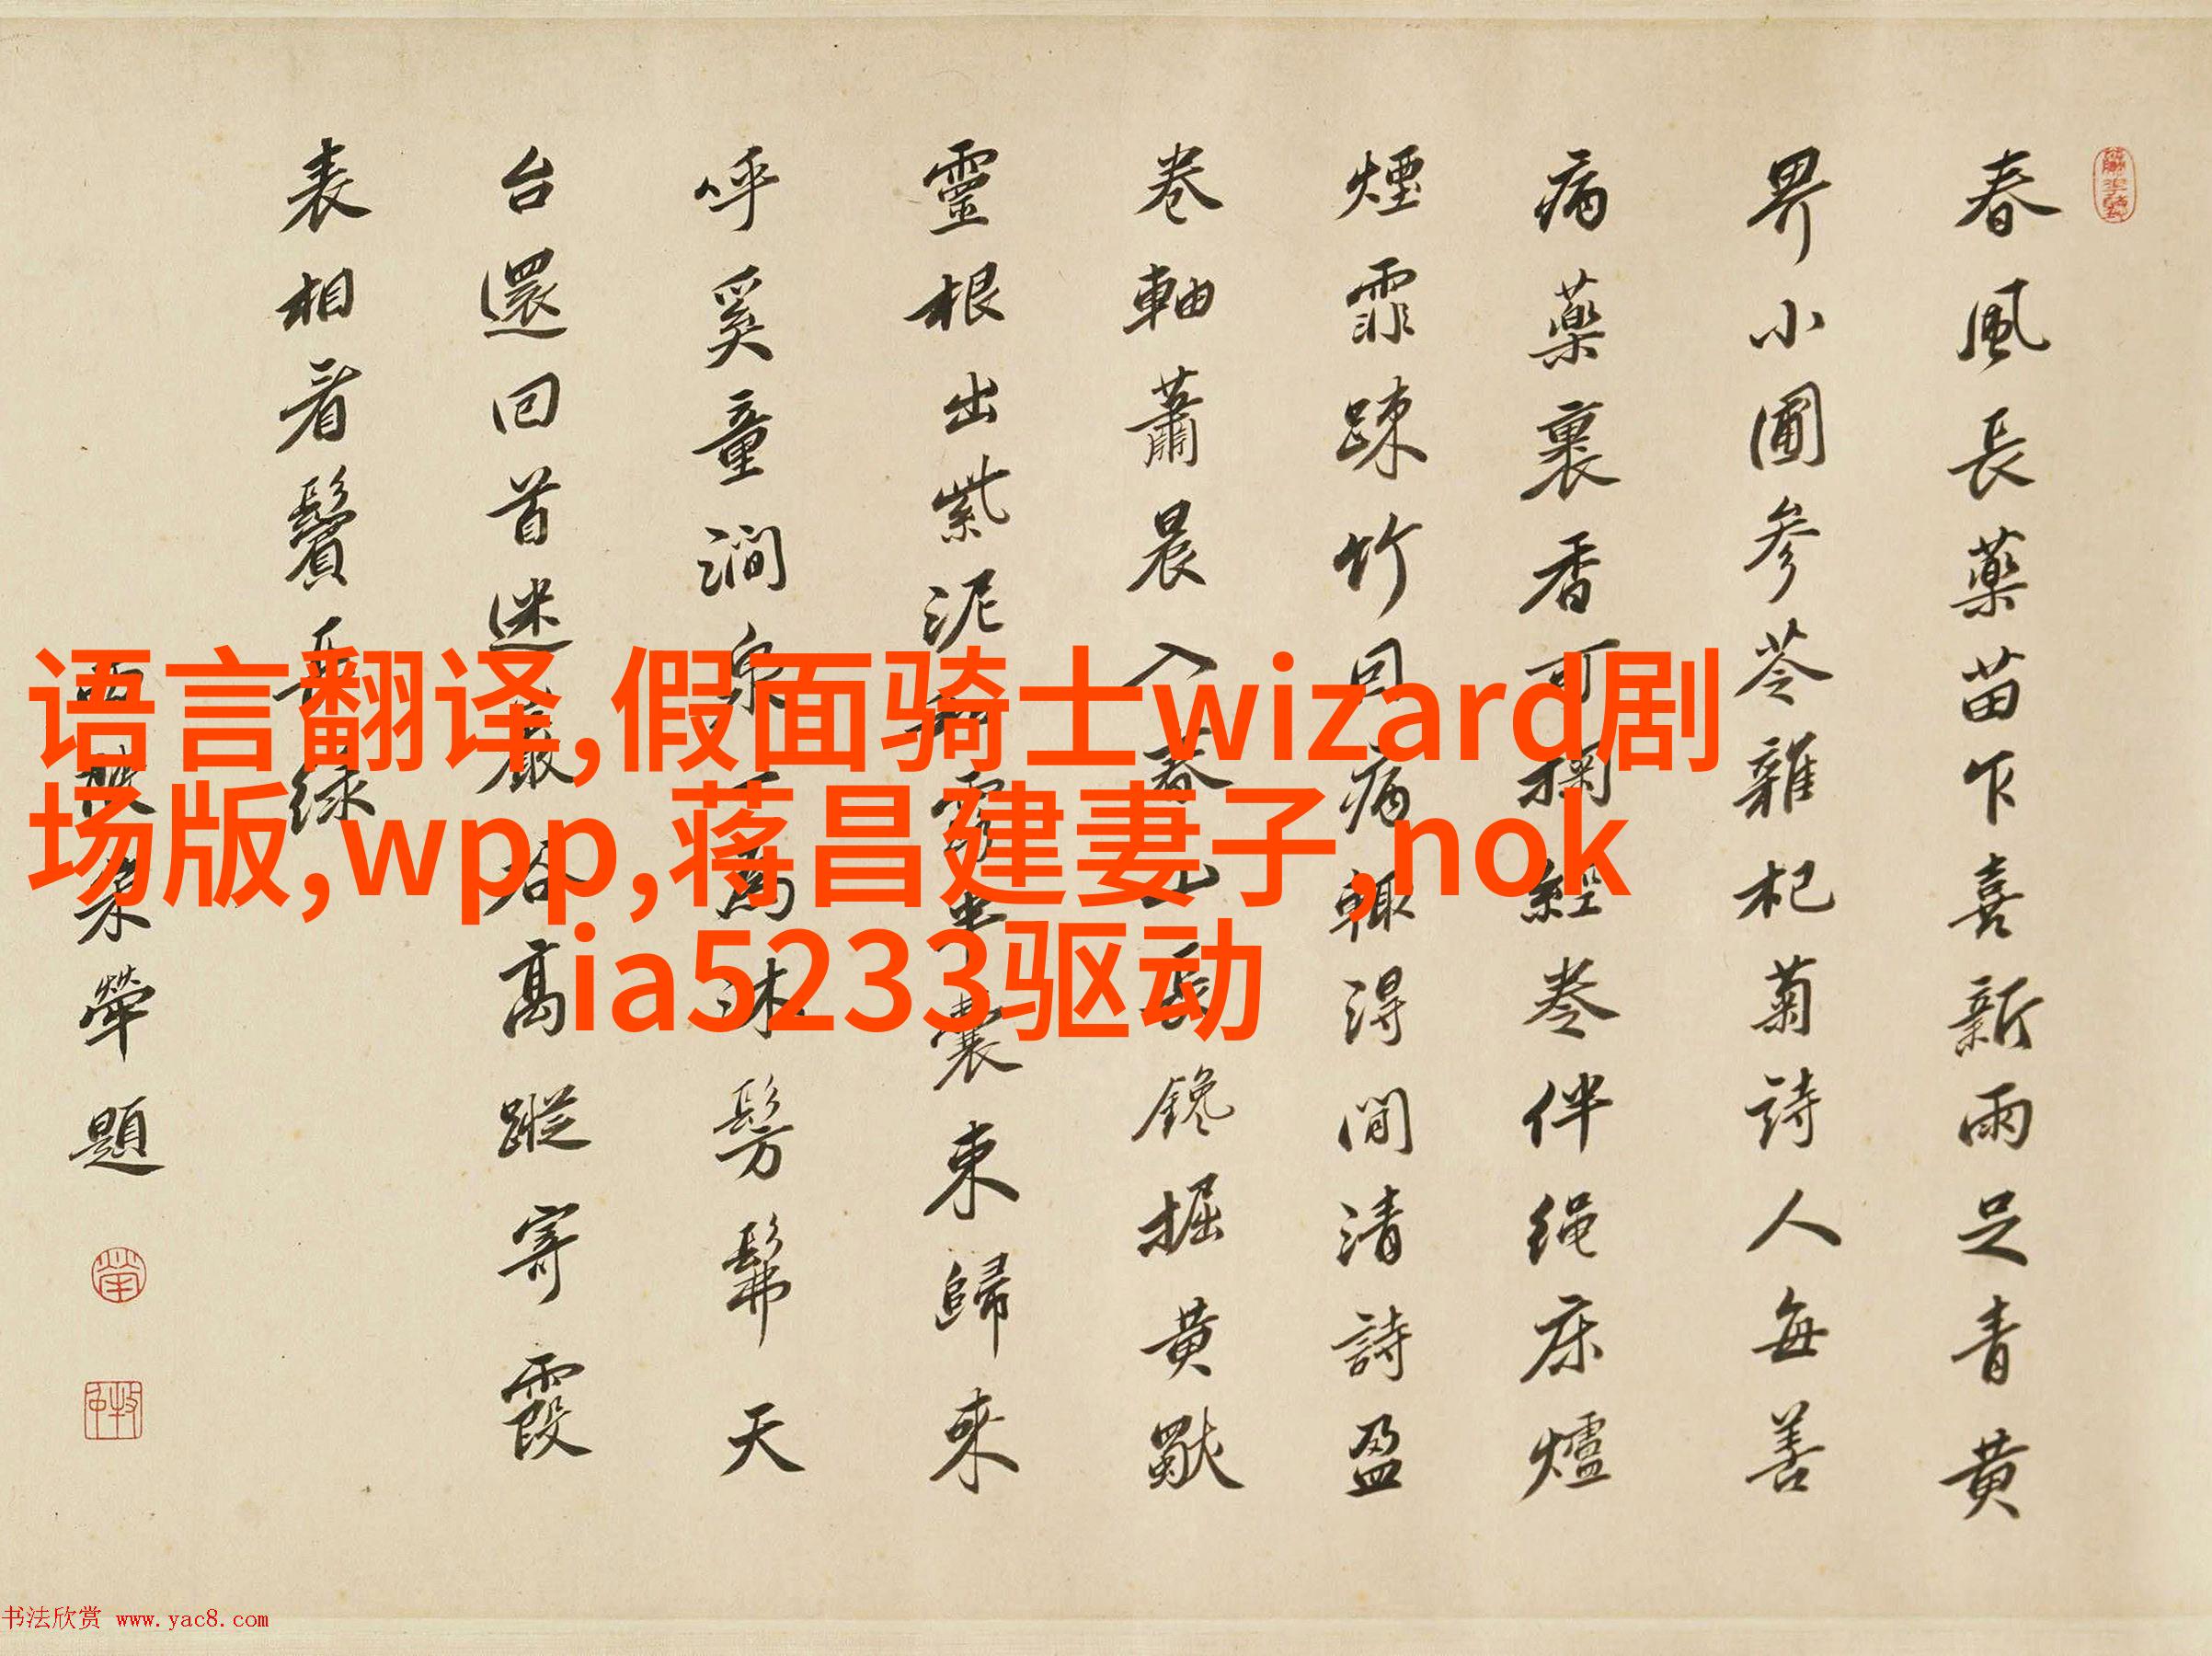 春風長藥苗乍喜新雨足青黄
畀小圃參苓雜杞菊詩人每善
病藥裹香可掬經卷伴绳床爐
煙霏踈竹因病輒得閒清詩盈
卷軸蕭晨入春山長鑱掘黄
靈根出紫泥和囊束歸來
呼奚童澗泉沐髣髴天
台還回首迷巖谷高蹤寄霞
表相看鬢長緑
西陂宋犖題
语言翻译,假面骑士wizard剧
场版,wpp,蒋昌建妻子,nok
ia5233驱动
书法欣赏 www.yac8.com